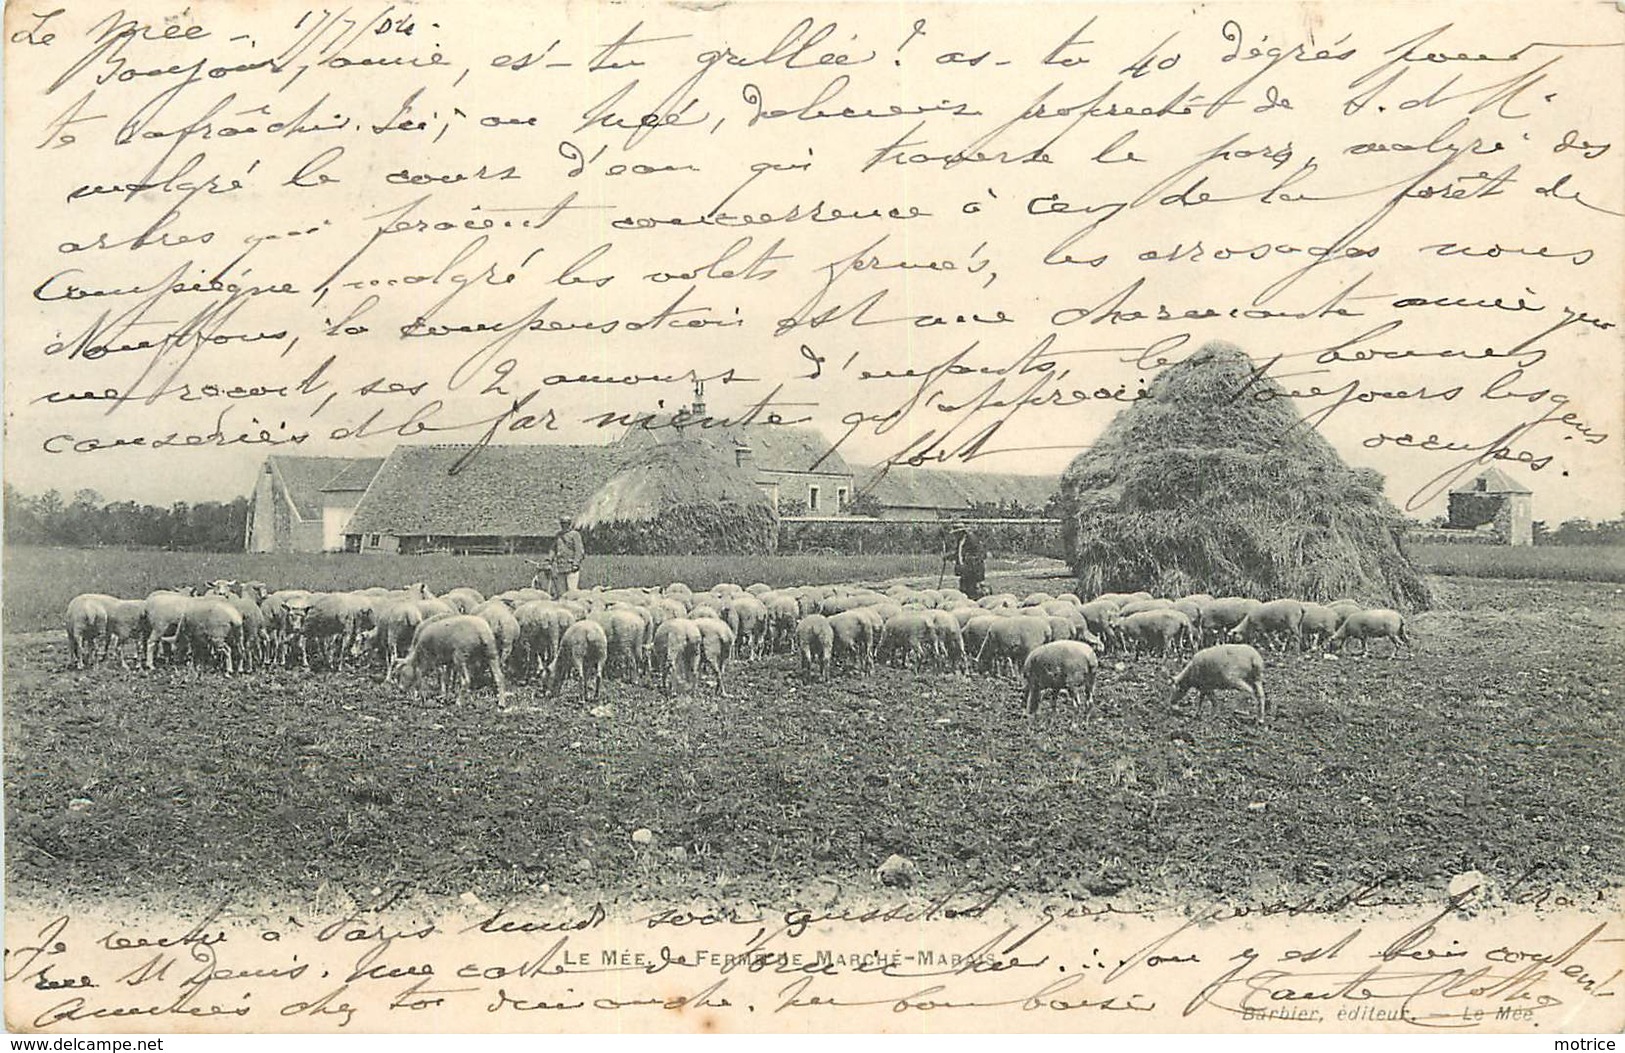 Le Mée - 17/7/04.
Bonjour, amie, es-tu grillée ? as-tu 40 dégrés pour
te rafraîchir. Ici, au Mée, propriété de
malgré le cours d'eau qui traverse le parc, malgré des
arbres qui feraient concurrence à de la forêt de
Compiègne, malgré les volets fermés, les arrosages nous
étouffons, la compensation est une charmante amie qui
me reçoit, ses 2 amours d'enfants, les bonnes
causeries et le far niente qu'apprécie toujours les gens
fort occupés.
Je rentre à Paris lundi soir, aussitôt que possible j'irai
rue St Denis. Une carte de hier ... on y est bien content
Amitiés chez toi dimanche. Un bon baiser Tante
LE MÉE. - FERME DE MARCHÉ-MARAIS
Barbier, éditeur. - Le Mée
delcampe.net
motrice